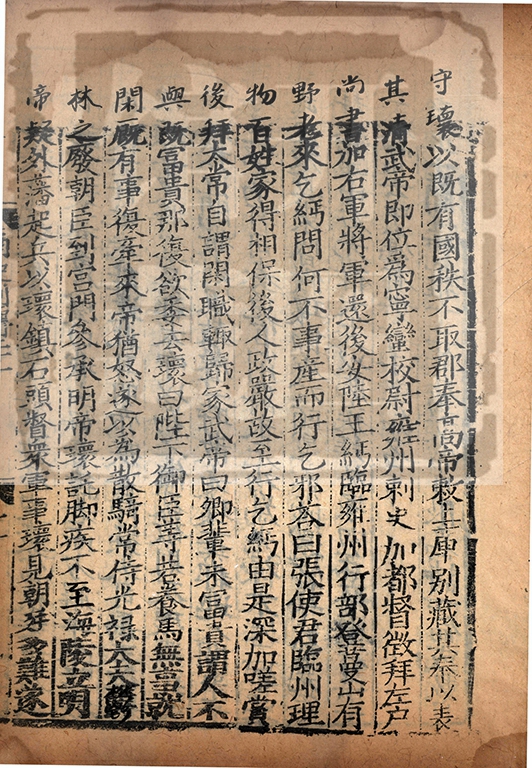 守瓌以既有國秩不取郡奉高帝敕上庫別藏其奉以表
其清武帝即位爲寧蠻校尉雍州刺史加都督徵拜左户
尚書加右軍將軍還後安陸王緬臨雍州行部登蔓山有
野老來乞緬問何不事產而行乞邪荅曰張使君臨州理
物百姓家得相保後人政嚴故至行乞緬由是深加嗟賞
後拜太常自謂閑職輒歸家武帝曰卿輩未富貴謂人不
與既富貴那復欲委去瓌曰陛下御臣等若養馬無事就
閑厩有事復牽來帝猶怒遂以為散騎常侍光禄大夫鬱
林之廢朝臣到宮門參承明帝瓌託脚疾不至海陵立明
帝疑外藩起兵以瓌鎮石頭督衆軍事瓌見朝廷多難遂